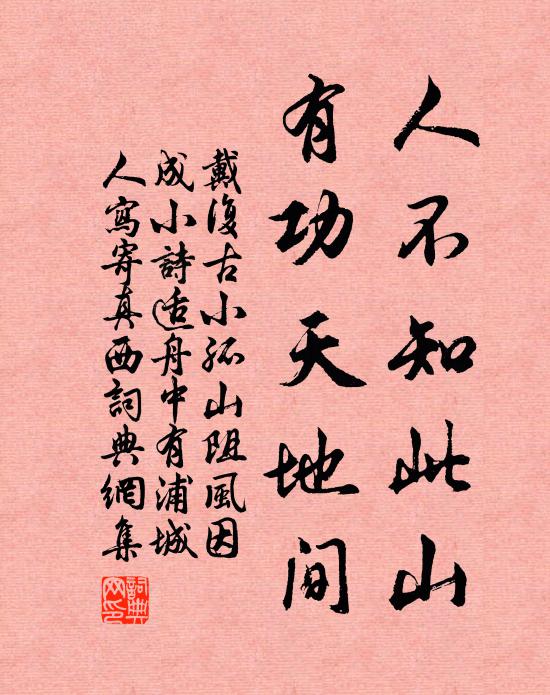 人不知此山
有功天地間
戴復古小孤山阻風因
成小詩适舟中有浦城
人寫寄真西詞典網集
詞典网印